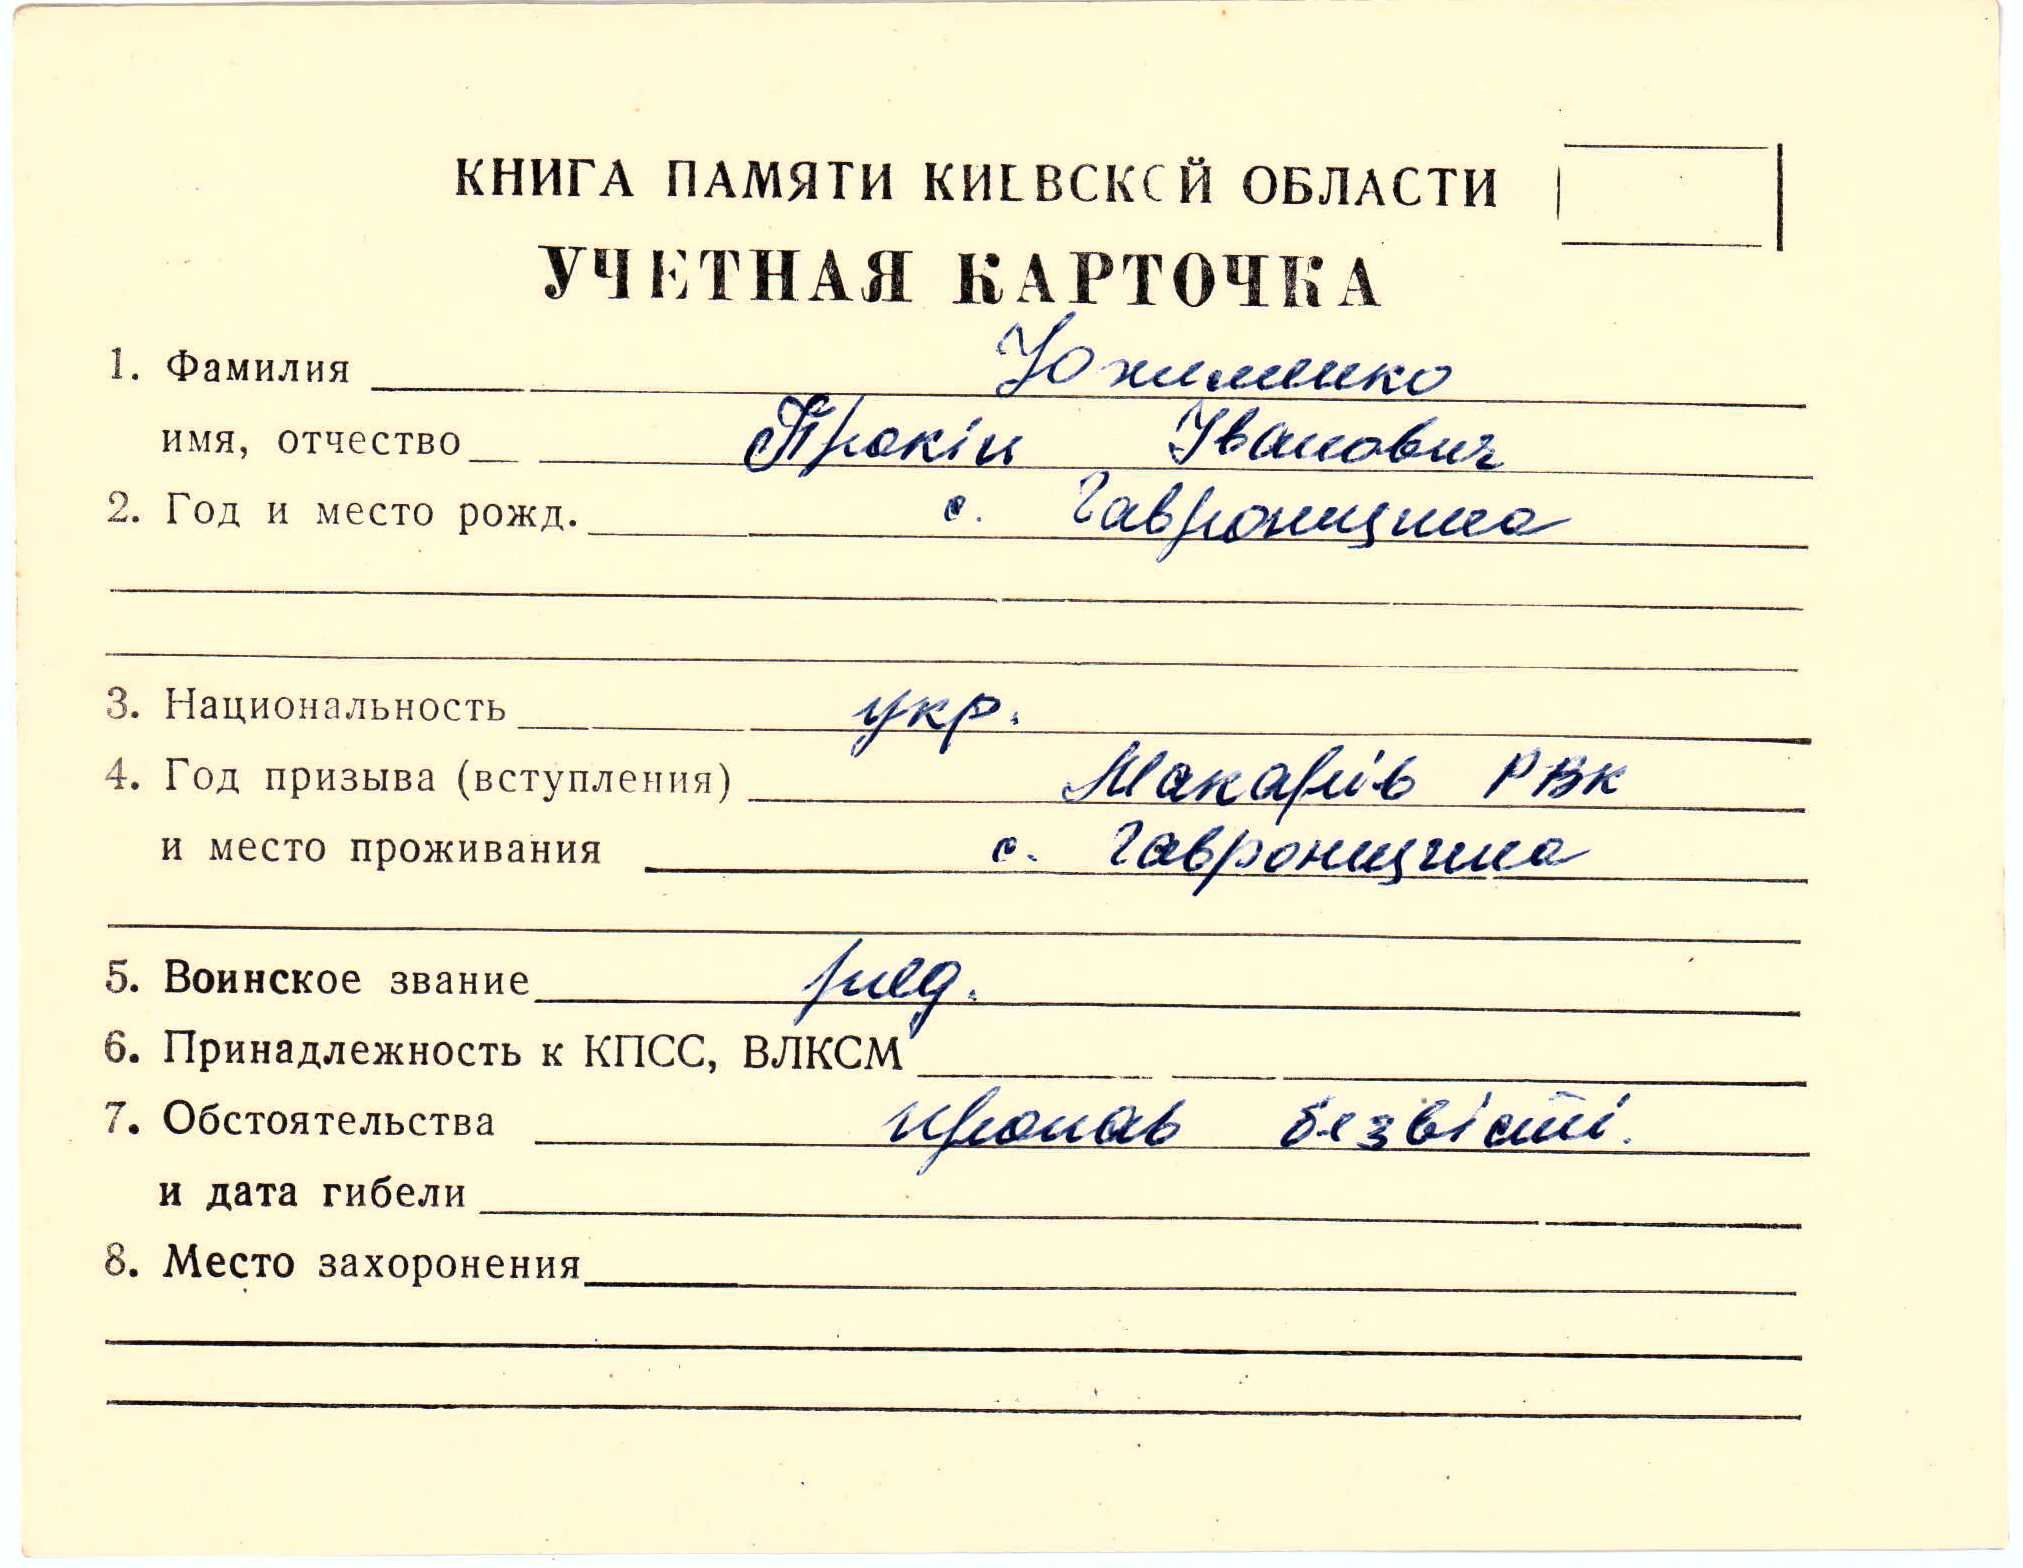 КНИГА ПАМЯТИ КИЕВСКОЙ ОБЛАСТИ
УЧЕТНАЯ КАРТОЧКА
1. Фамилия Юхименко
имя, отчество Прокіп Іванович
2. Год и место рожд. с. Гавронщина
3. Национальность укр.
4. Год призыва (вступления) Макарів РВК
и место проживания с. Гавронщина
5. Воинское звание ряд.
6. Принадлежность к КПСС, ВЛКСМ
7. Обстоятельства пропав безвісті.
и дата гибели
8. Место захоронения